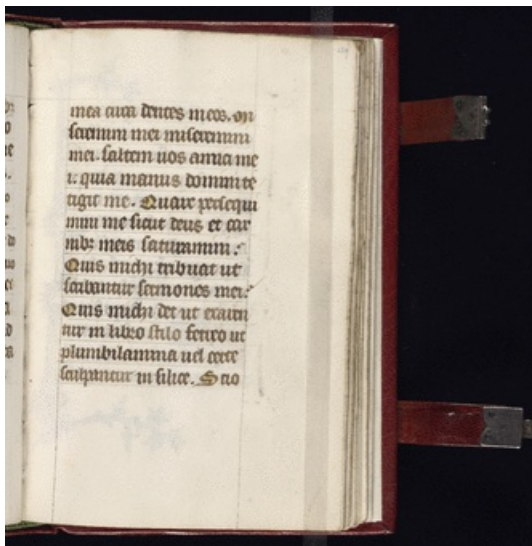 mea circa dentes meos. Mi
seremini mei miseremini
mei. saltem uos amici me
i: quia manus domini te
tigit me. Quare persequi
mini me sicut deus et car
nibꝫ meis saturamini:
Quis michi tribuat ut
scribantur sermones mei:
Quis michi det ut exaren
tur in libro stilo ferreo ut
plumbilamina uel certe
sculpantur in silice. Scio